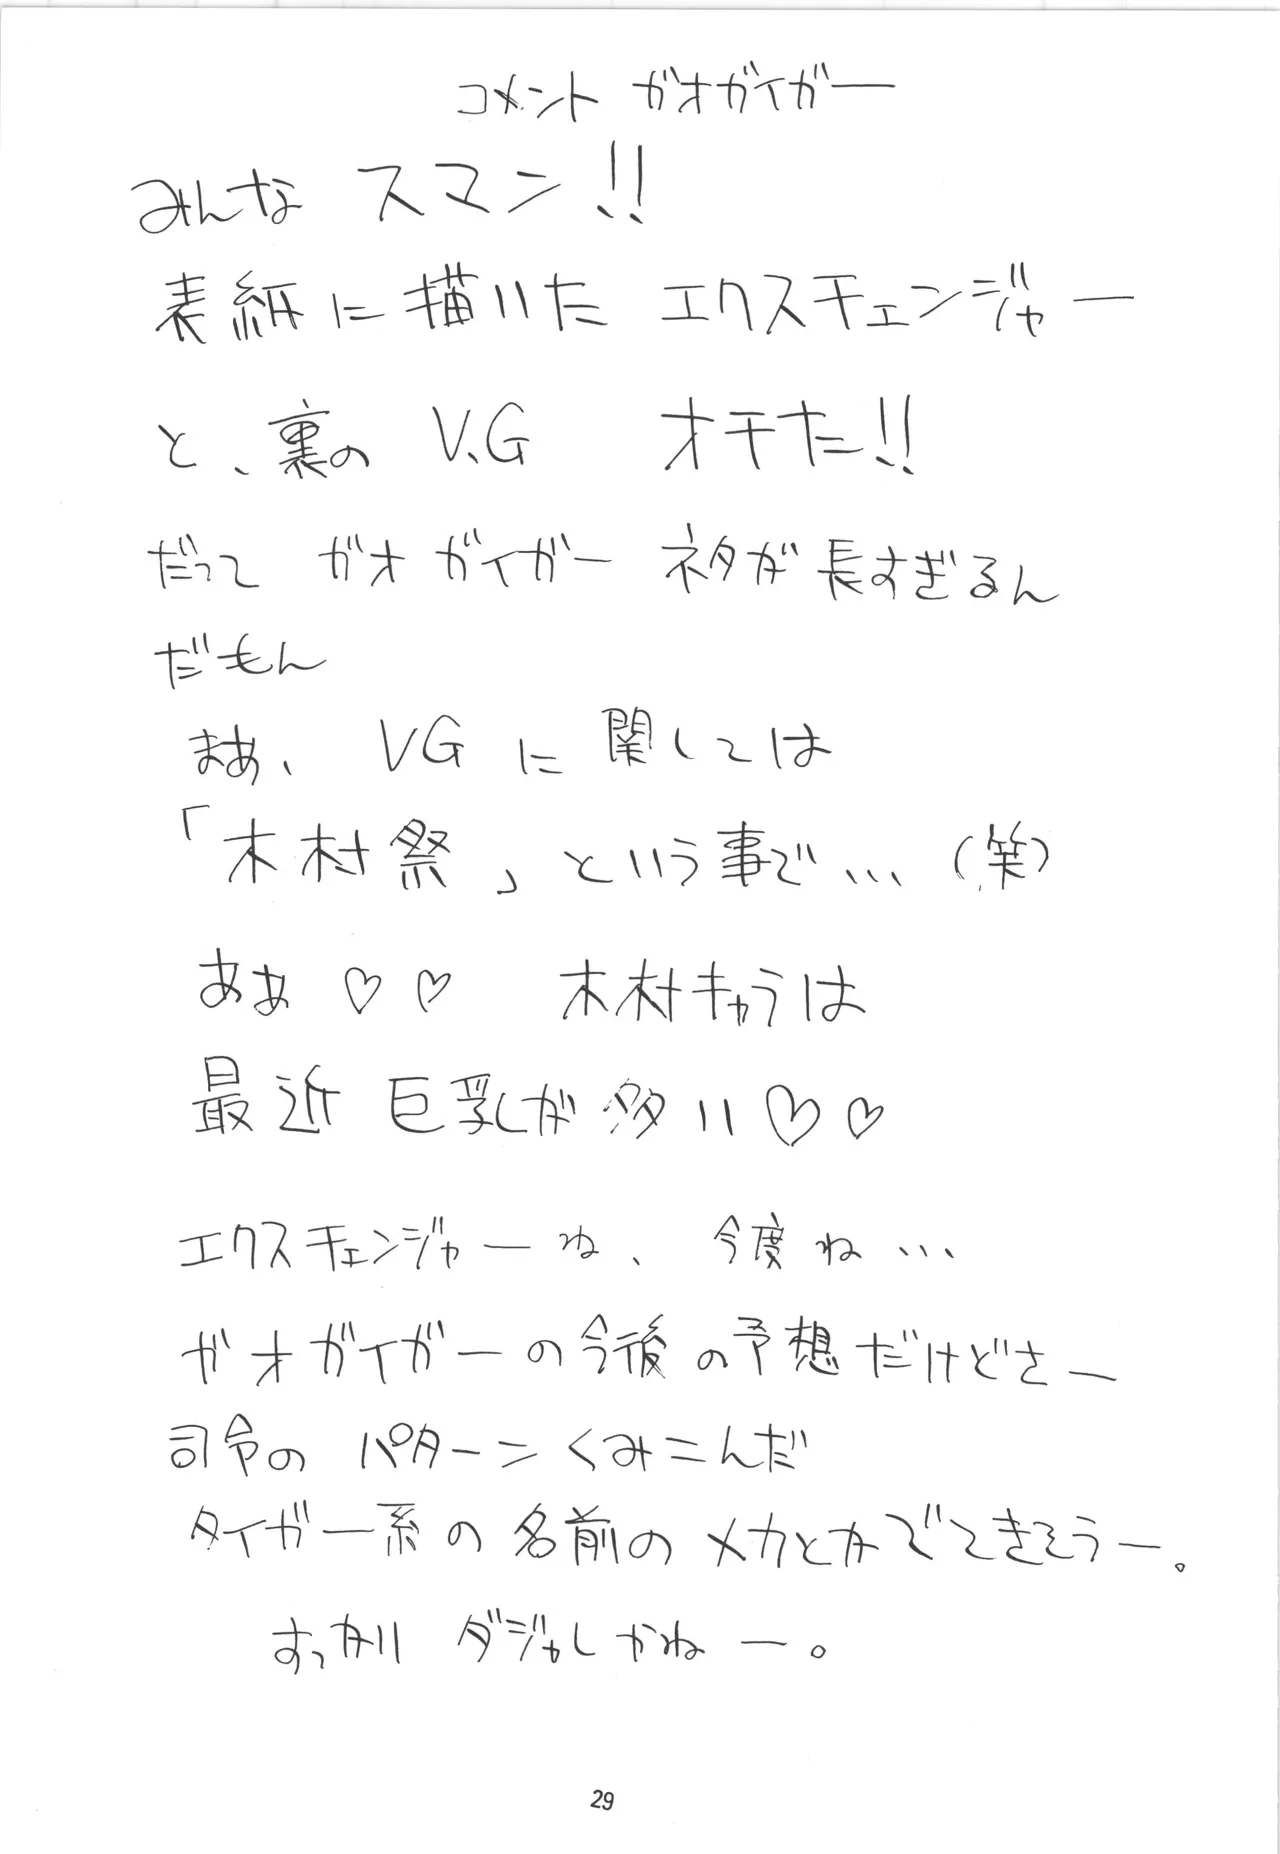 コメント ガオガイガー
みんな スマン!!
表紙に描いた エクスチェンジャー
と、裏の V.G オチた!!
だって ガオガイガー ネタが長すぎるん
だもん
まあ、 VGに関しては
「木村祭」という事で…(笑)
ああ♡♡ 木村キャラは
最近巨乳が多い♡♡
エクスチェンジャーね、今度ね…
ガオガイガーの今後の予想だけどさー
司令のパターンくみこんだ
タイガー系の名前のメカとかでてきそうー。
すっかり ダジャレかねー。
29